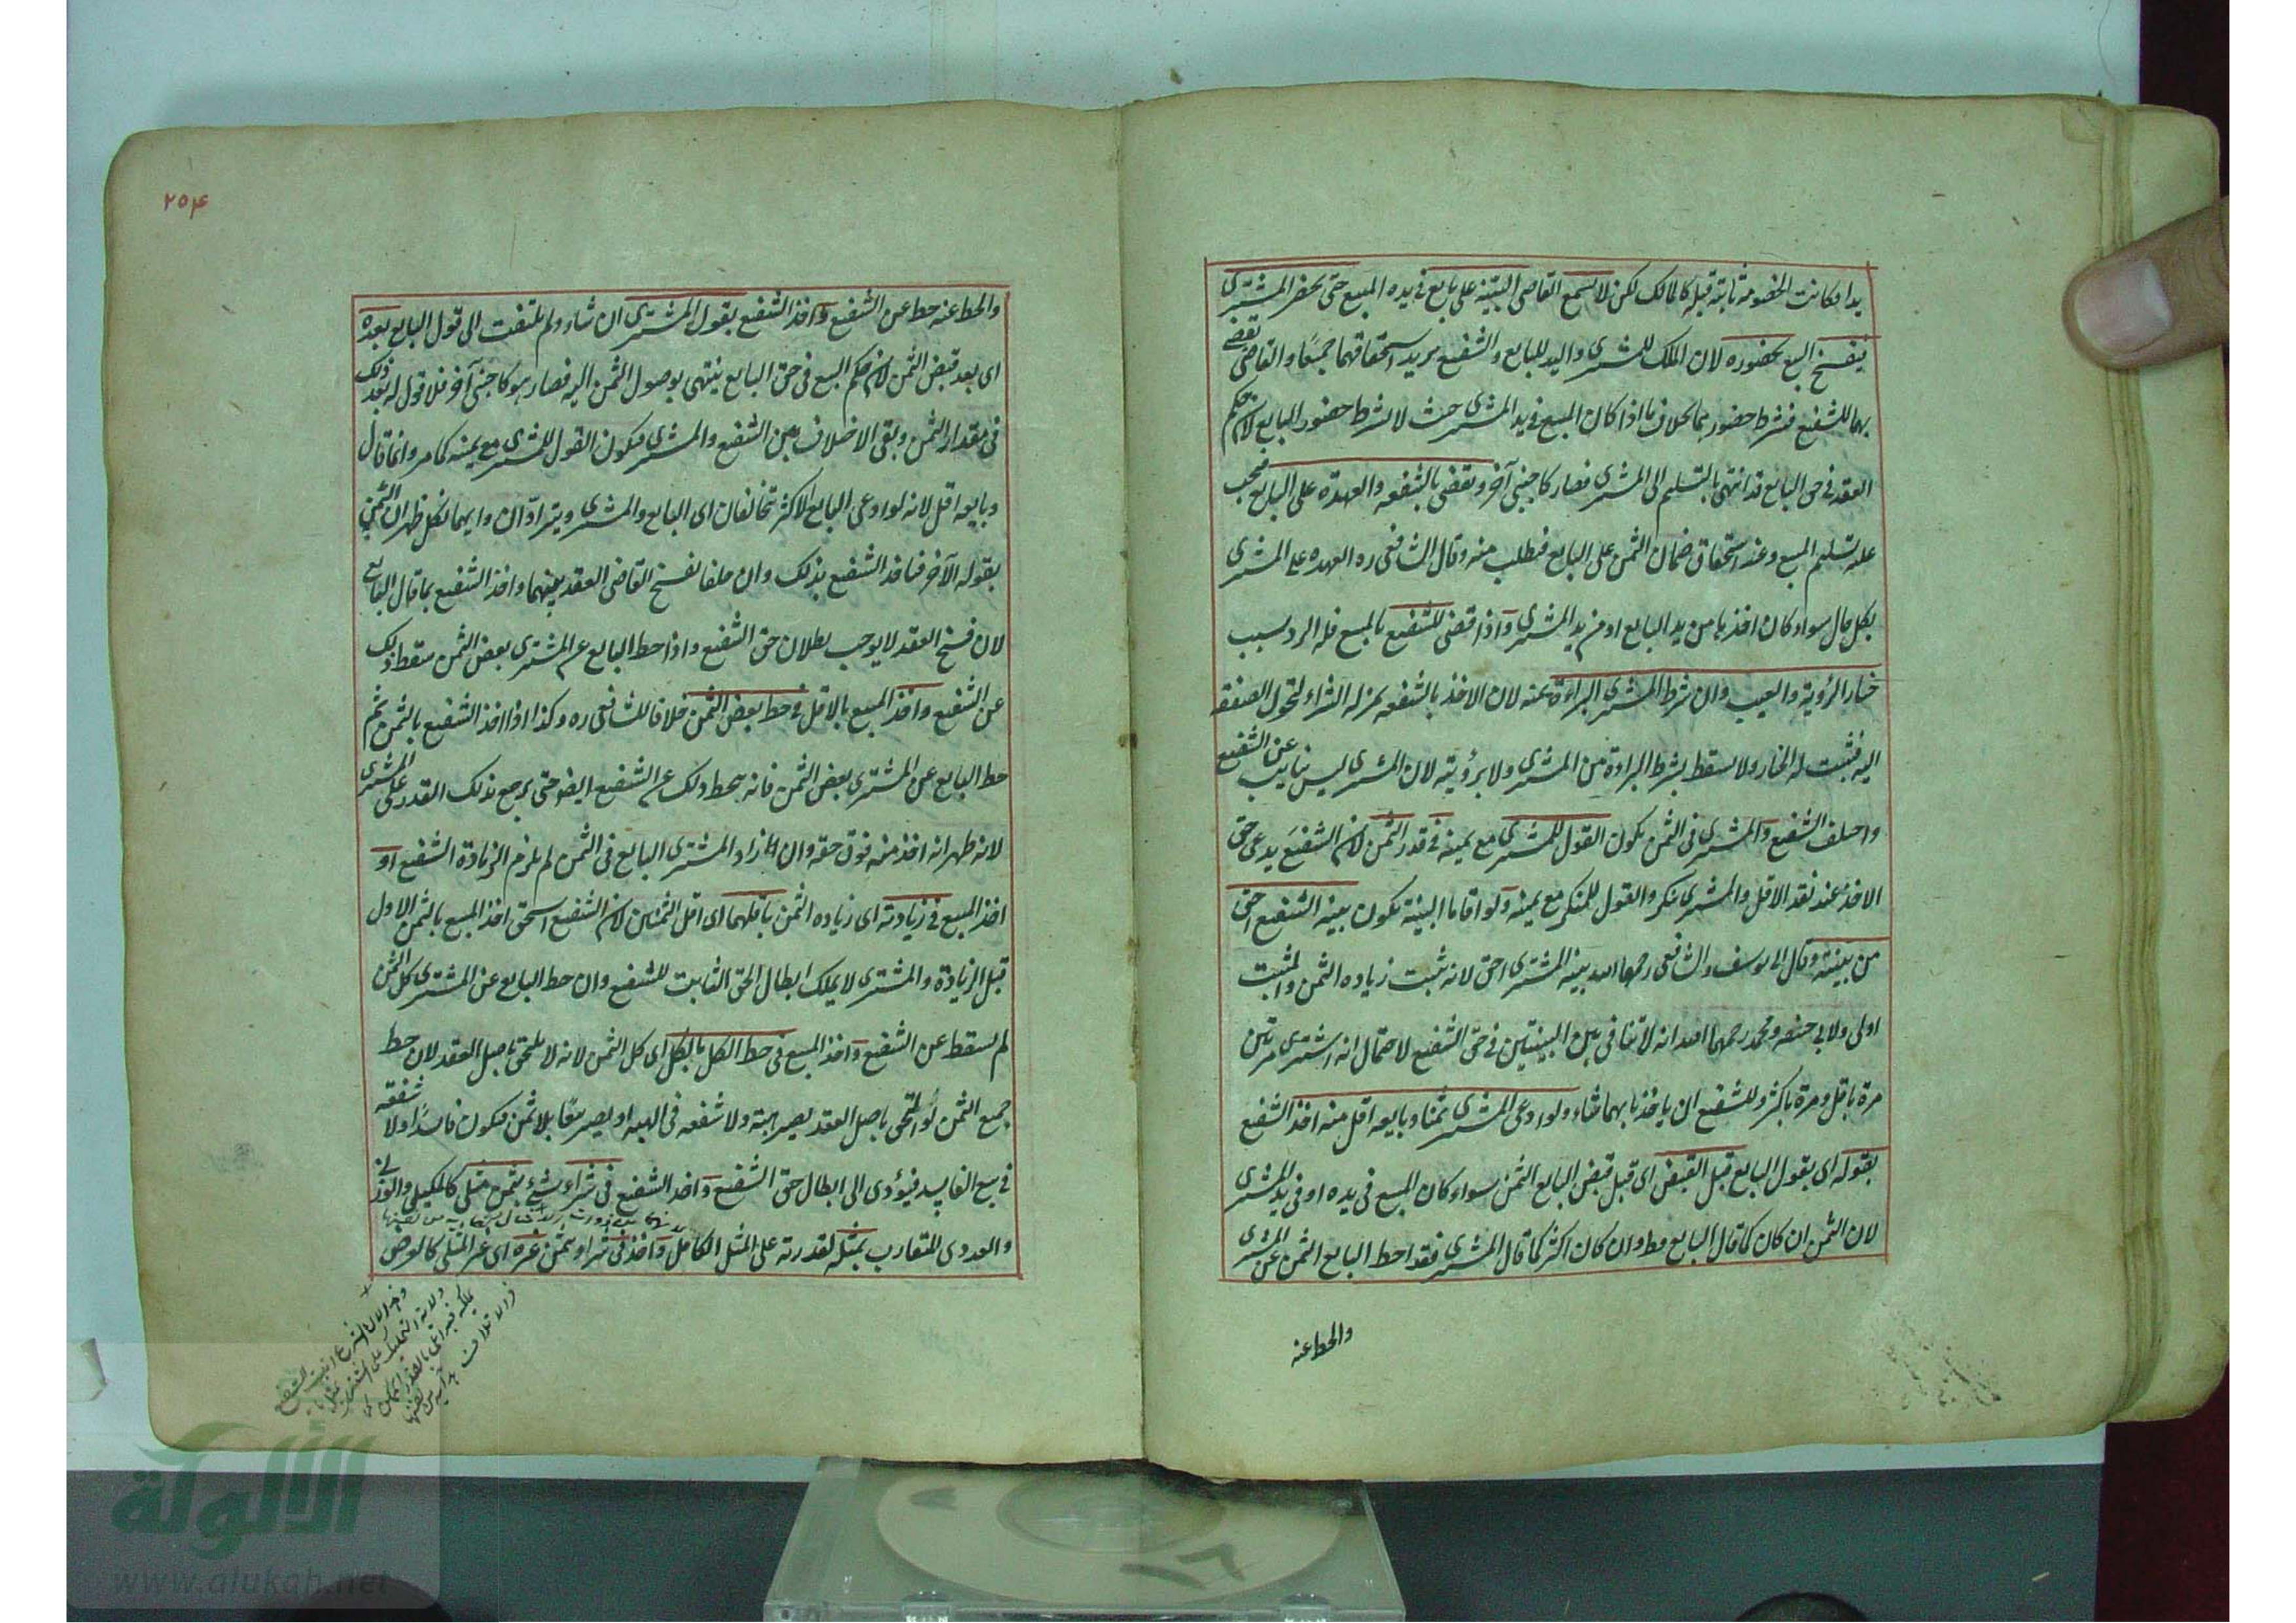 يدا فكانت الخصومة ثابتة قبله كالمالك لكن لا تسمع القاضى البينة على بايع فى يده المبيع حتى يحضر المشترى
فيفسخ البيع بحضوره لان الملك للمشترى واليد للبايع والشفيع يريد استحقاقهما جميعًا والقاضى يقضى
بهما للشفيع فشرط حضورهما بخلاف ما اذا كان المبيع فى يد المشترى حيث لا يشترط حضور البايع لان حكم
العقد فى حق البايع قد انتهى بالتسليم الى المشترى فصار كاجنبى آخر ويقضى بالشفعه والعهدة على البايع فيجب
عليه تسليم المبيع وعند استحقاق ضمان الثمن على البايع فيطلب منه وقال الشافعى ره العهده على المشترى
بكل حال سواء كان اخذها من يد البايع او من يد المشترى واذا قضى للشفيع بالمبيع فله الرد بسبب
خيار الرؤية والعيب وان شرط المشترى البراءة عنه لان الاخذ بالشفعه بمنزلة الشراء لتحول الصفقة
اليه فيثبت له الخيار ولا يسقط بشرط البراءة من المشترى ولا برؤيته لان المشترى ليس بنايب عن الشفيع
واختلف الشفيع والمشترى فى الثمن يكون القول للمشترى مع يمينه فى قدر الثمن لان الشفيع يدعى حق
الاخذ عند نقد الاقل والمشترى منكر والقول للمنكر مع يمينه ولو اقاما البينة يكون بينة الشفيع احق
من بينته وقال ابى يوسف والشافعى رحمهما الله بينة المشترى احق لانه يثبت زياده الثمن والمثبت
اولى ولابى حنيفه ومحمد رحمهما الله انه لا تنافى بين البينتين فى حق الشفيع لاحتمال انه اشترى مرتين
مرة باقل ومرة باكثر وللشفيع ان ياخذ بايهما شاء ولو ادعى المشترى ثمنا وبايعه اقل منه اخذ الشفيع
بقوله اى بقول البايع قبل القبض اى قبل قبض البايع الثمن سواء كان المبيع فى يده او فى يد المشترى
لان الثمن ان كان كما قال البايع فظ وان كان اكثر كما قال المشترى فقد احط البايع الثمن عن المشترى
والحط عنه
٢٥٤
والحط عنه حط عن الشفيع واخذ الشفيع بقول المشترى ان شاء ولم يلتفت الى قول البايع بعده
اى بعد قبض الثمن لان حكم البيع فى حق البايع ينتهى بوصول الثمن اليه فصار هو كاجنبى آخر فلا قول له بعد ذلك
فى مقدار الثمن وبقى الاختلاف بين الشفيع والمشترى فيكون القول للمشترى مع يمينه كما مر وانما قال
وبايعه اقل لانه لو ادعى البايع الاكثر تحالفان اى البايع والمشترى ويترادّان وايهما نكل ظهر ان الثمن
بقوله الآخر فياخذ الشفيع بذلك وان حلفا فسخ القاضى العقد بينهما واخذ الشفيع بما قال البايع
لان فسخ العقد لا يوجب بطلان حق الشفيع واذا حط البايع عن المشترى بعض الثمن سقط ذلك
عن الشفيع واخذ المبيع بالاقل فى حط بعض الثمن خلافا للشافعى ره وكذا اذا اخذ الشفيع بالثمن ثم
حط البايع عن المشترى بعض الثمن فانه يحط ذلك عن الشفيع ايضو حتى يرجع بذلك القدر على المشترى
لانه ظهر انه اخذ منه فوق حقه وان زاد المشترى البايع فى الثمن لم يلزم الزيادة الشفيع او
اخذ المبيع فى زيادته اى زياده الثمن باقلهما اى اقل الثمنين لان الشفيع استحق اخذ المبيع بالثمن الاول
قبل الزيادة والمشترى لا يملك ابطال الحق الثابت للشفيع وان حط البايع عن المشترى كل الثمن
لم يسقط عن الشفيع واخذ المبيع فى حط الكل بالكل اى كل الثمن لانه لا يلتحق باصل العقد لان حط
جميع الثمن لو التحق باصل العقد يصير هبة ولا شفعه فى الهبه او يصير بيعًا بلا ثمن فيكون فاسدًا ولا شفعة
فى بيع الفاسد فيؤدى الى ابطال حق الشفيع واخذ الشفيع فى شراء شئ بثمن مثلى كالمكيل والوزنى
والعددى المتقارب بمثله لقدرته على المثل الكامل واخذ فى شراء بثمن غيره اى غير المثلى كالعرض
الألوكة
www.alukah.net